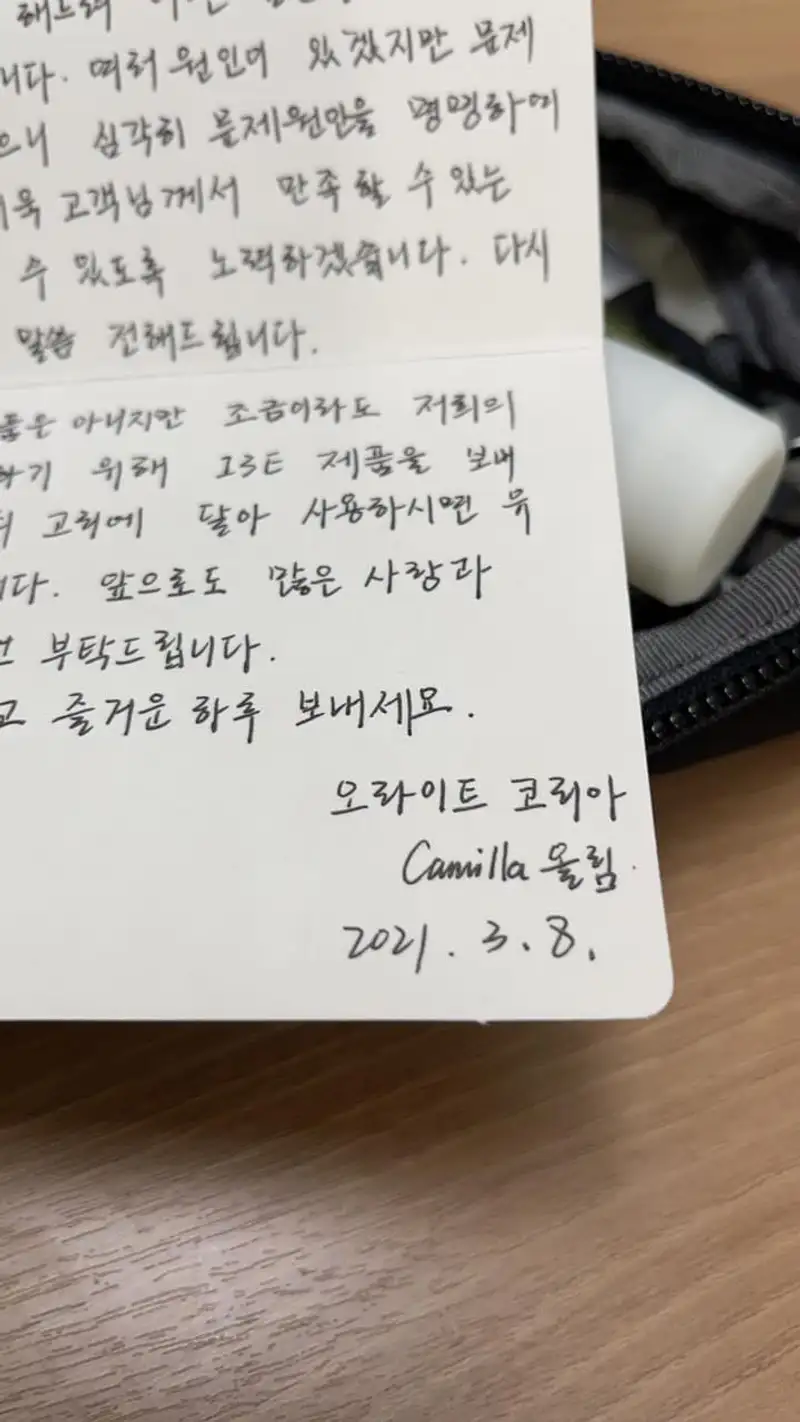 니다. 여러 원인이 있겠지만 문제
으니 심각히 문제원인을 명명하여
욱 고객님께서 만족할 수 있는
수 있도록 노력하겠습니다. 다시
말씀 전해드립니다.
품은 아니지만 조금이라도 저희의
하기 위해 I3E 제품을 보내
고리에 달아 사용하시면 유
니다. 앞으로도 많은 사랑과
부탁드립니다.
고 즐거운 하루 보내세요.
오라이트 코리아
Camilla 올림.
2021. 3. 8.